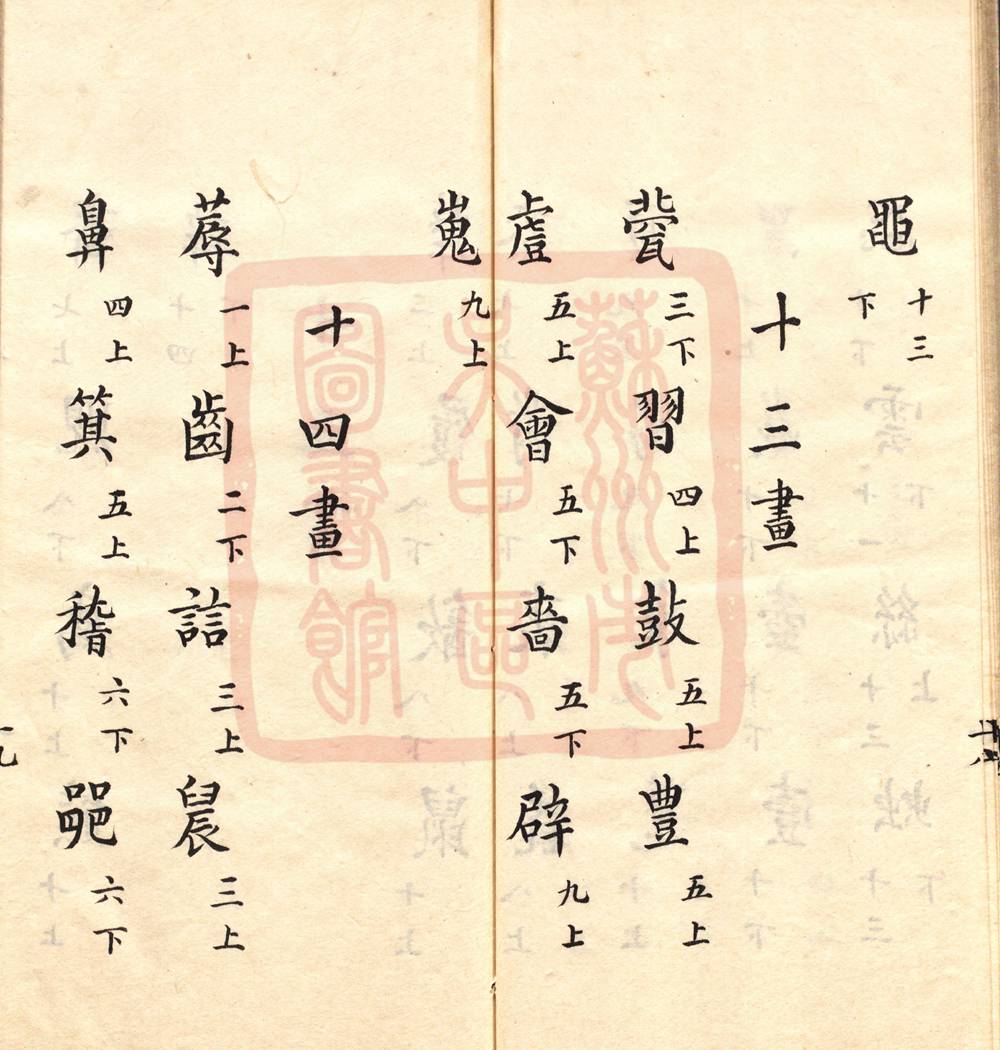 黽十三下
十三畫
㼱三下習四上鼓五上豊五上
䖒五上會五下嗇五下辟九上
嵬九上
十四畫
蓐一上齒二下誩三上䢅三上
鼻四上箕五上稽六下𨛜六下
蘇州市
吳中區
圖書館